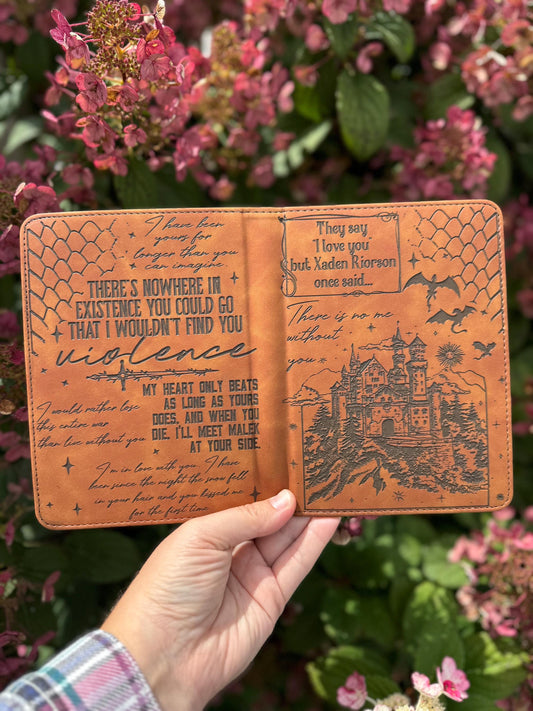 I have been
yours for
longer than you
can imagine
THERE'S NOWHERE IN
EXISTENCE YOU COULD GO
THAT I WOULDN'T FIND YOU
violence
MY HEART ONLY BEATS
AS LONG AS YOURS
DOES. AND WHEN YOU
DIE, I'LL MEET MALEK
AT YOUR SIDE.
I would rather lose
this entire war
than live without you
I'm in love with you. I have
been since the night the snow fell
in your hair and you kissed me
for the first time
They say
I love you
but Xaden Riorson
once said...
There is no me
without
you